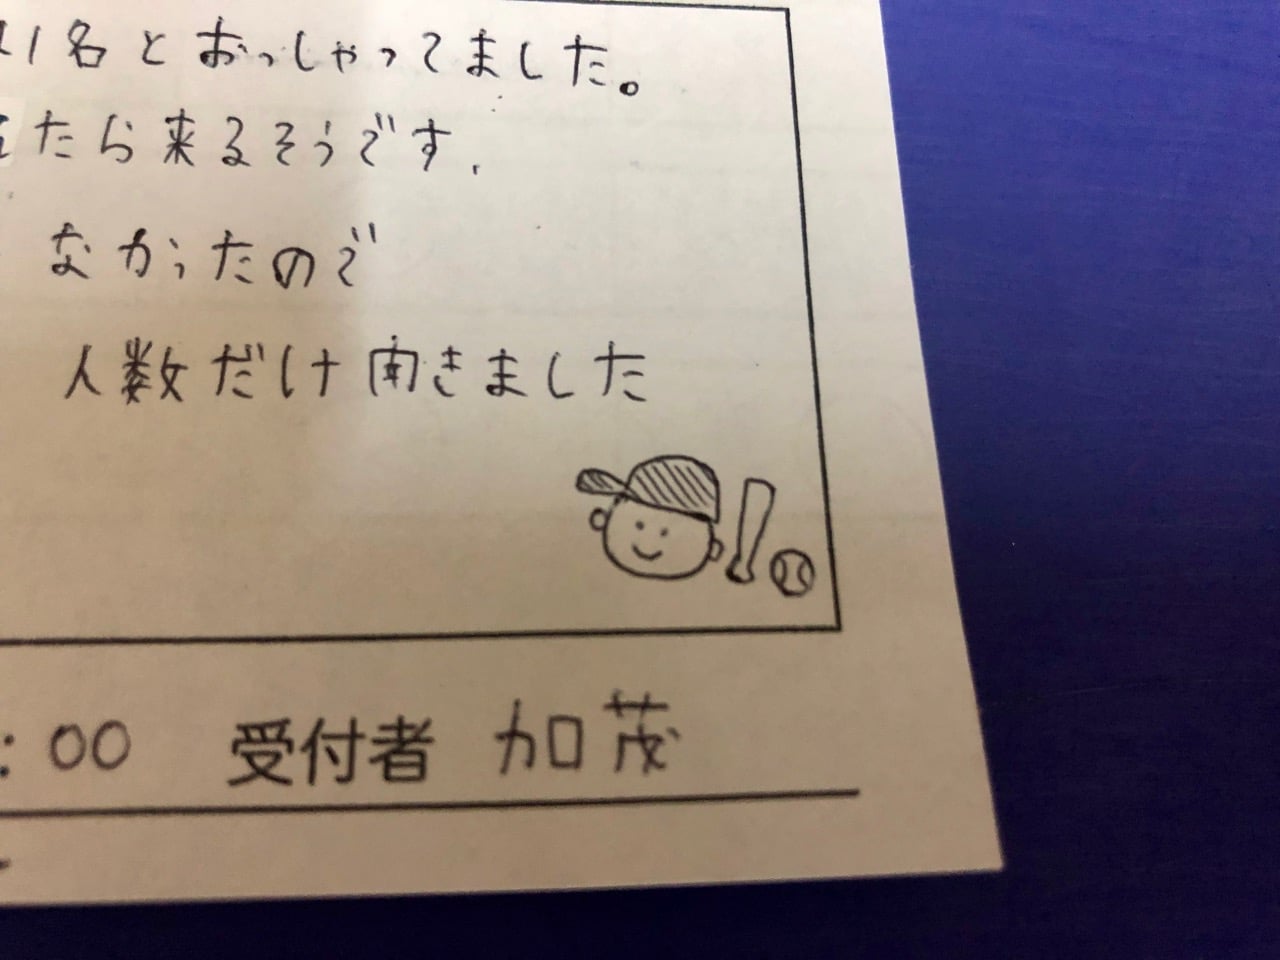 1名とおっしゃってました。
たら来るそうです.
なかったので
人数だけ聞きました
:00 受付者 加茂